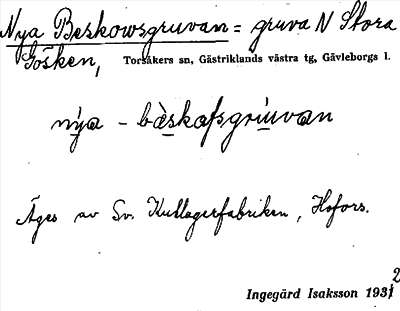 Nya Beskowsgruvan = gruva N Stora
Gösken, Torsåkers sn, Gästriklands västra tg, Gävleborgs l.
nỳa - bæ̀skafsgrúuvan
Äges av Sv. Kullagerfabriken, Hofors.
Ingegärd Isaksson 1932